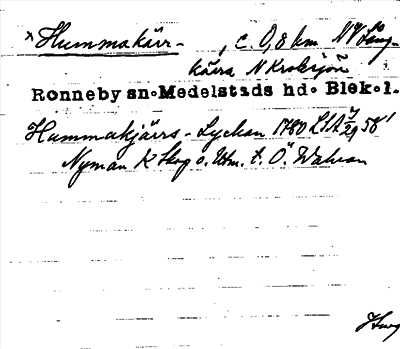 *Hummakärr- , c. 0,8 km NV Lång-
kärra N Kroksjön
Ronneby sn. Medelstads hd. Blek. l.
Hummakjärrs-Lyckan 1780 LSA 7/29 58'
Nyman K Skog o. Utm. t. Ö. Walvan